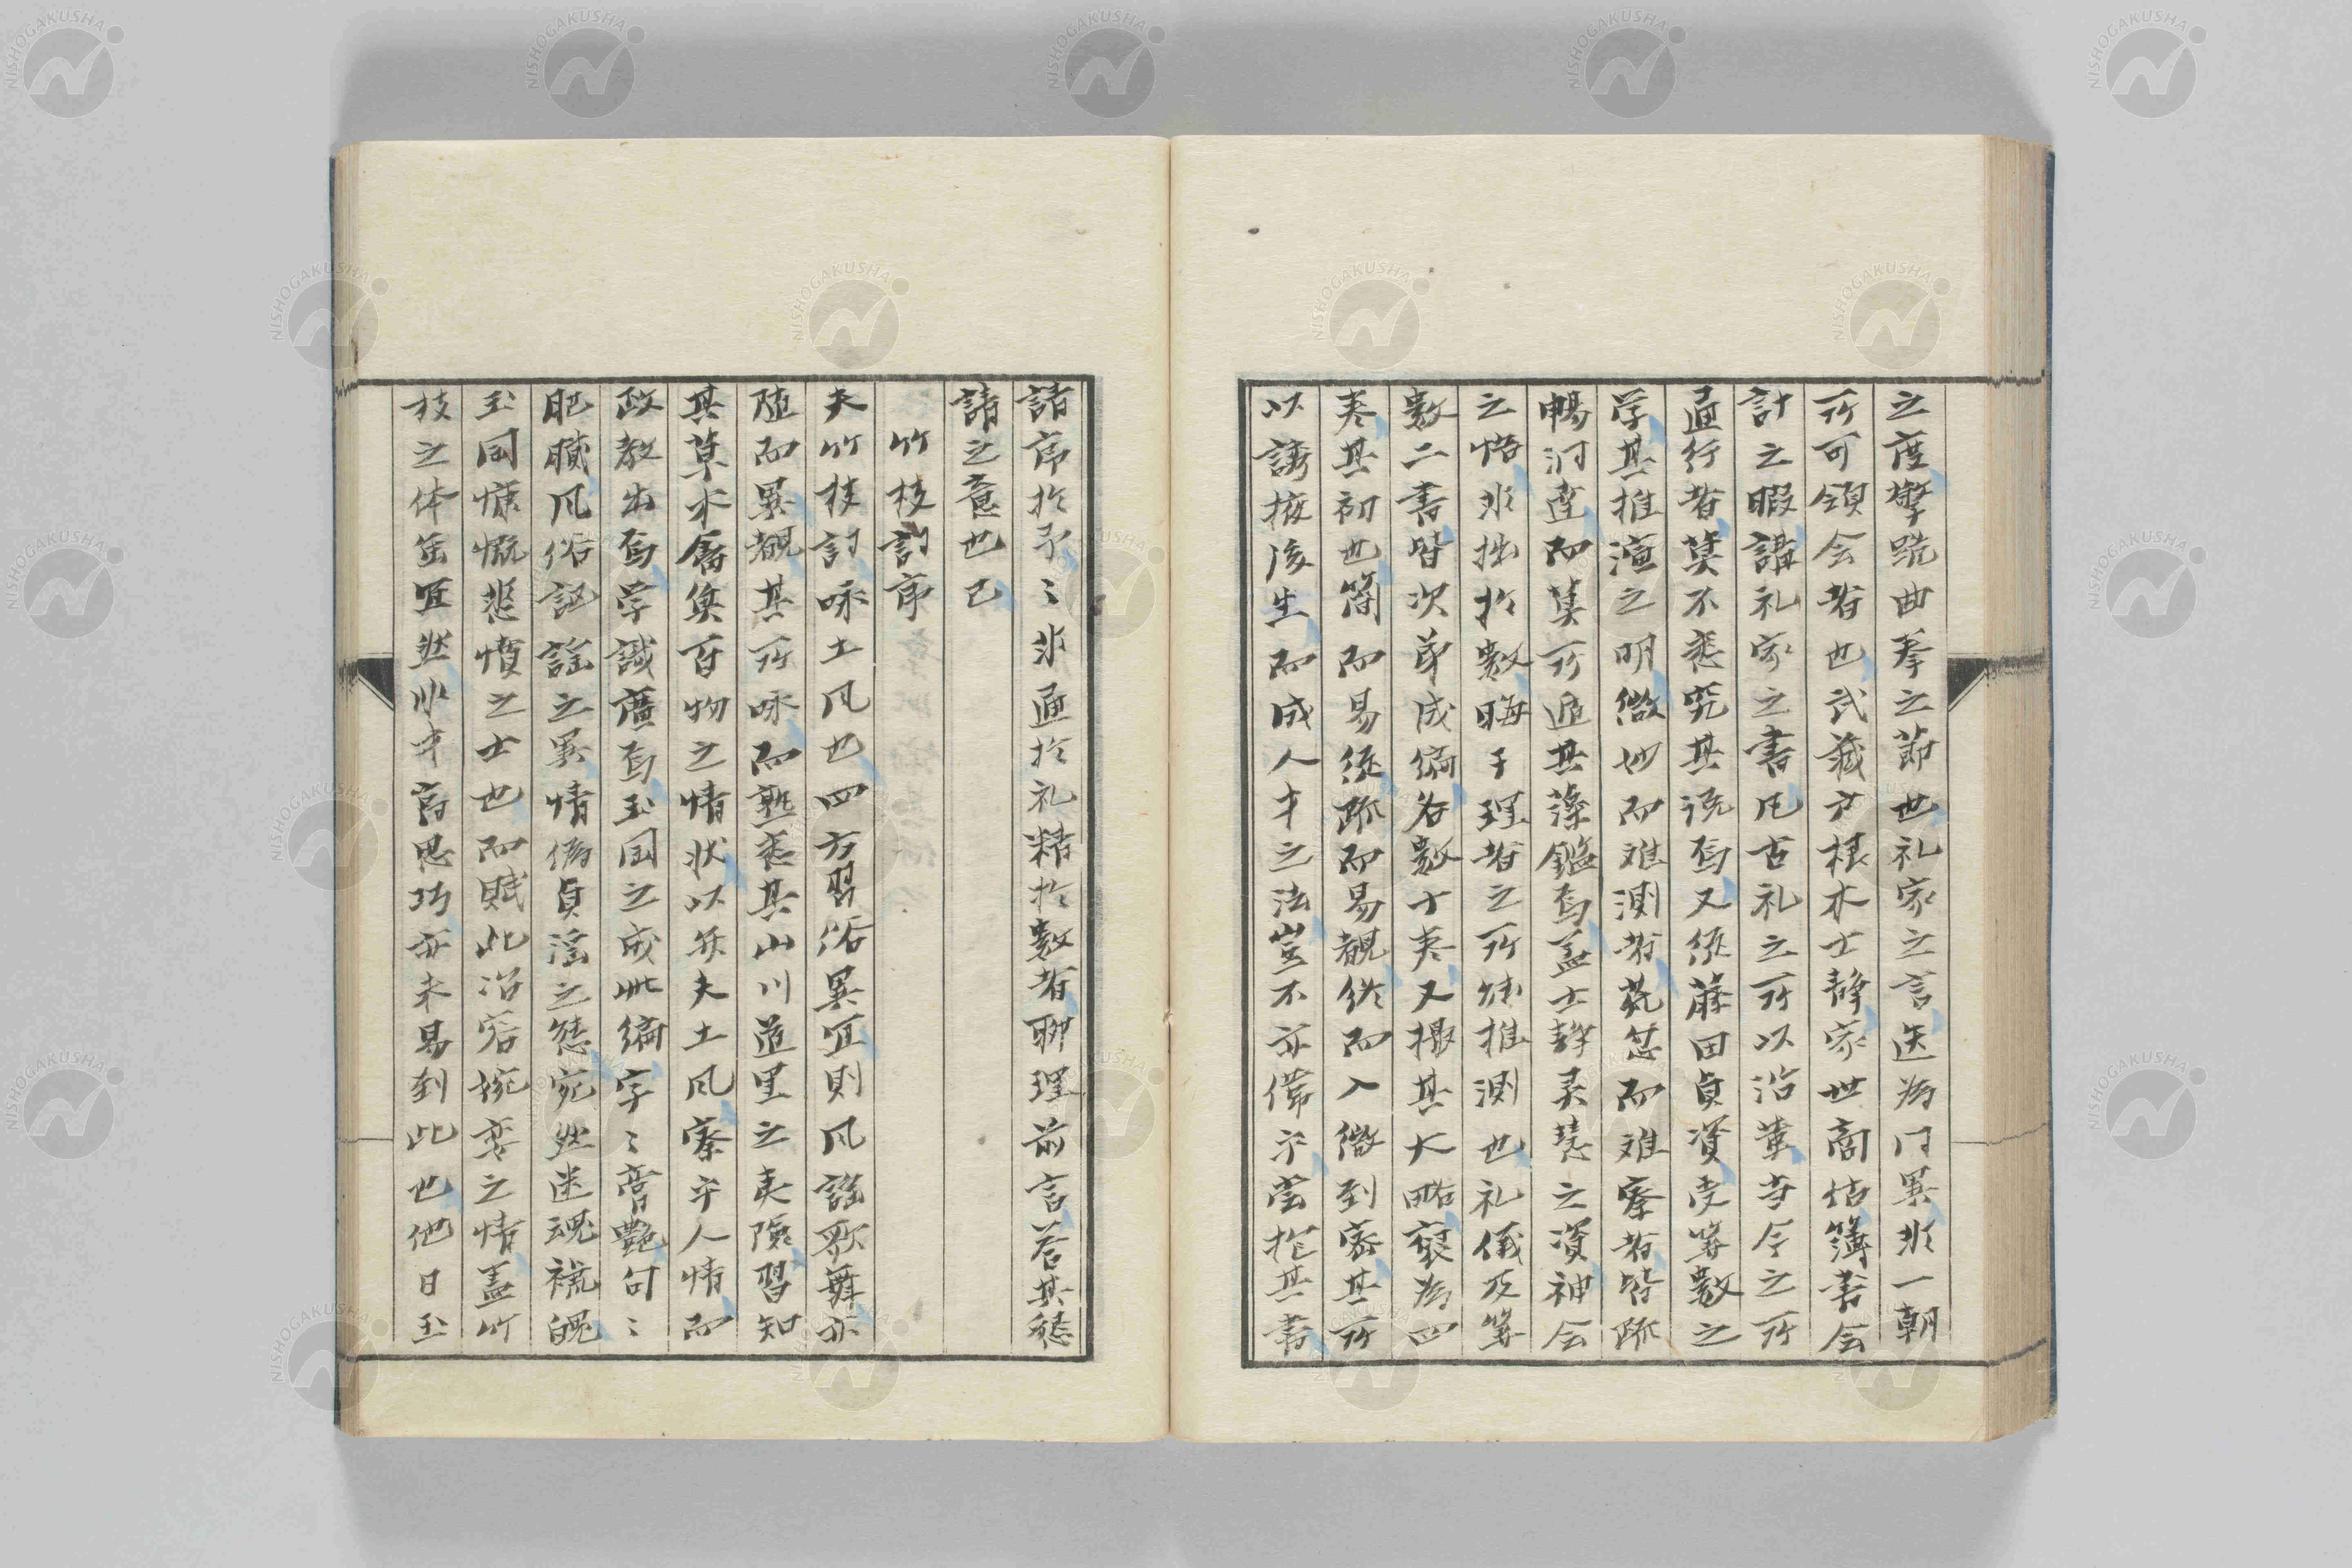 之度擎跪曲拳之節也礼家之言送為門異非一朝
所可領会者也武蔵六根木士静家世商估簿書会
計之暇講礼家之書凡古礼之所以沿革寺今之所
通行者莫不悉究其流焉又從藤田貞資受筭数之
学其推演之明微妙而难測者莞芒而难察者皆疏
暢洞達而莫所遁其藻鑑焉盖士静灵慧之資神会
之悟非拙於数晦于理者之所能推測也礼儀及筭
数二書皆次第成編各数十巻又撮其大略裒為四
巻其初也簡而易從疏而易観終而入微到密其所
以誘掖後生而成人才之法豈不亦偉乎嘗抱其書
請序於予〻非通於礼精於数者聊理前言答其慫
請之意也已
竹枝詞序
夫竹枝詞咏土风也四方習俗異宜則风謡歌舞亦
随而異観其所咏而熟悉其山川道里之夷険習知
其草木禽奠百物之情状以矣夫土风察乎人情而
政教出焉学識蘆焉玉国之成此編字〻膏艶句〻
肥膩凡俗記謡之異情偽貞淫之態宛然迷魂褫魄
玉国慷慨悲憤之士也而賦此冶容婉孌之情盖竹
枝之体宜然非才高思巧亦未易到此也他日玉